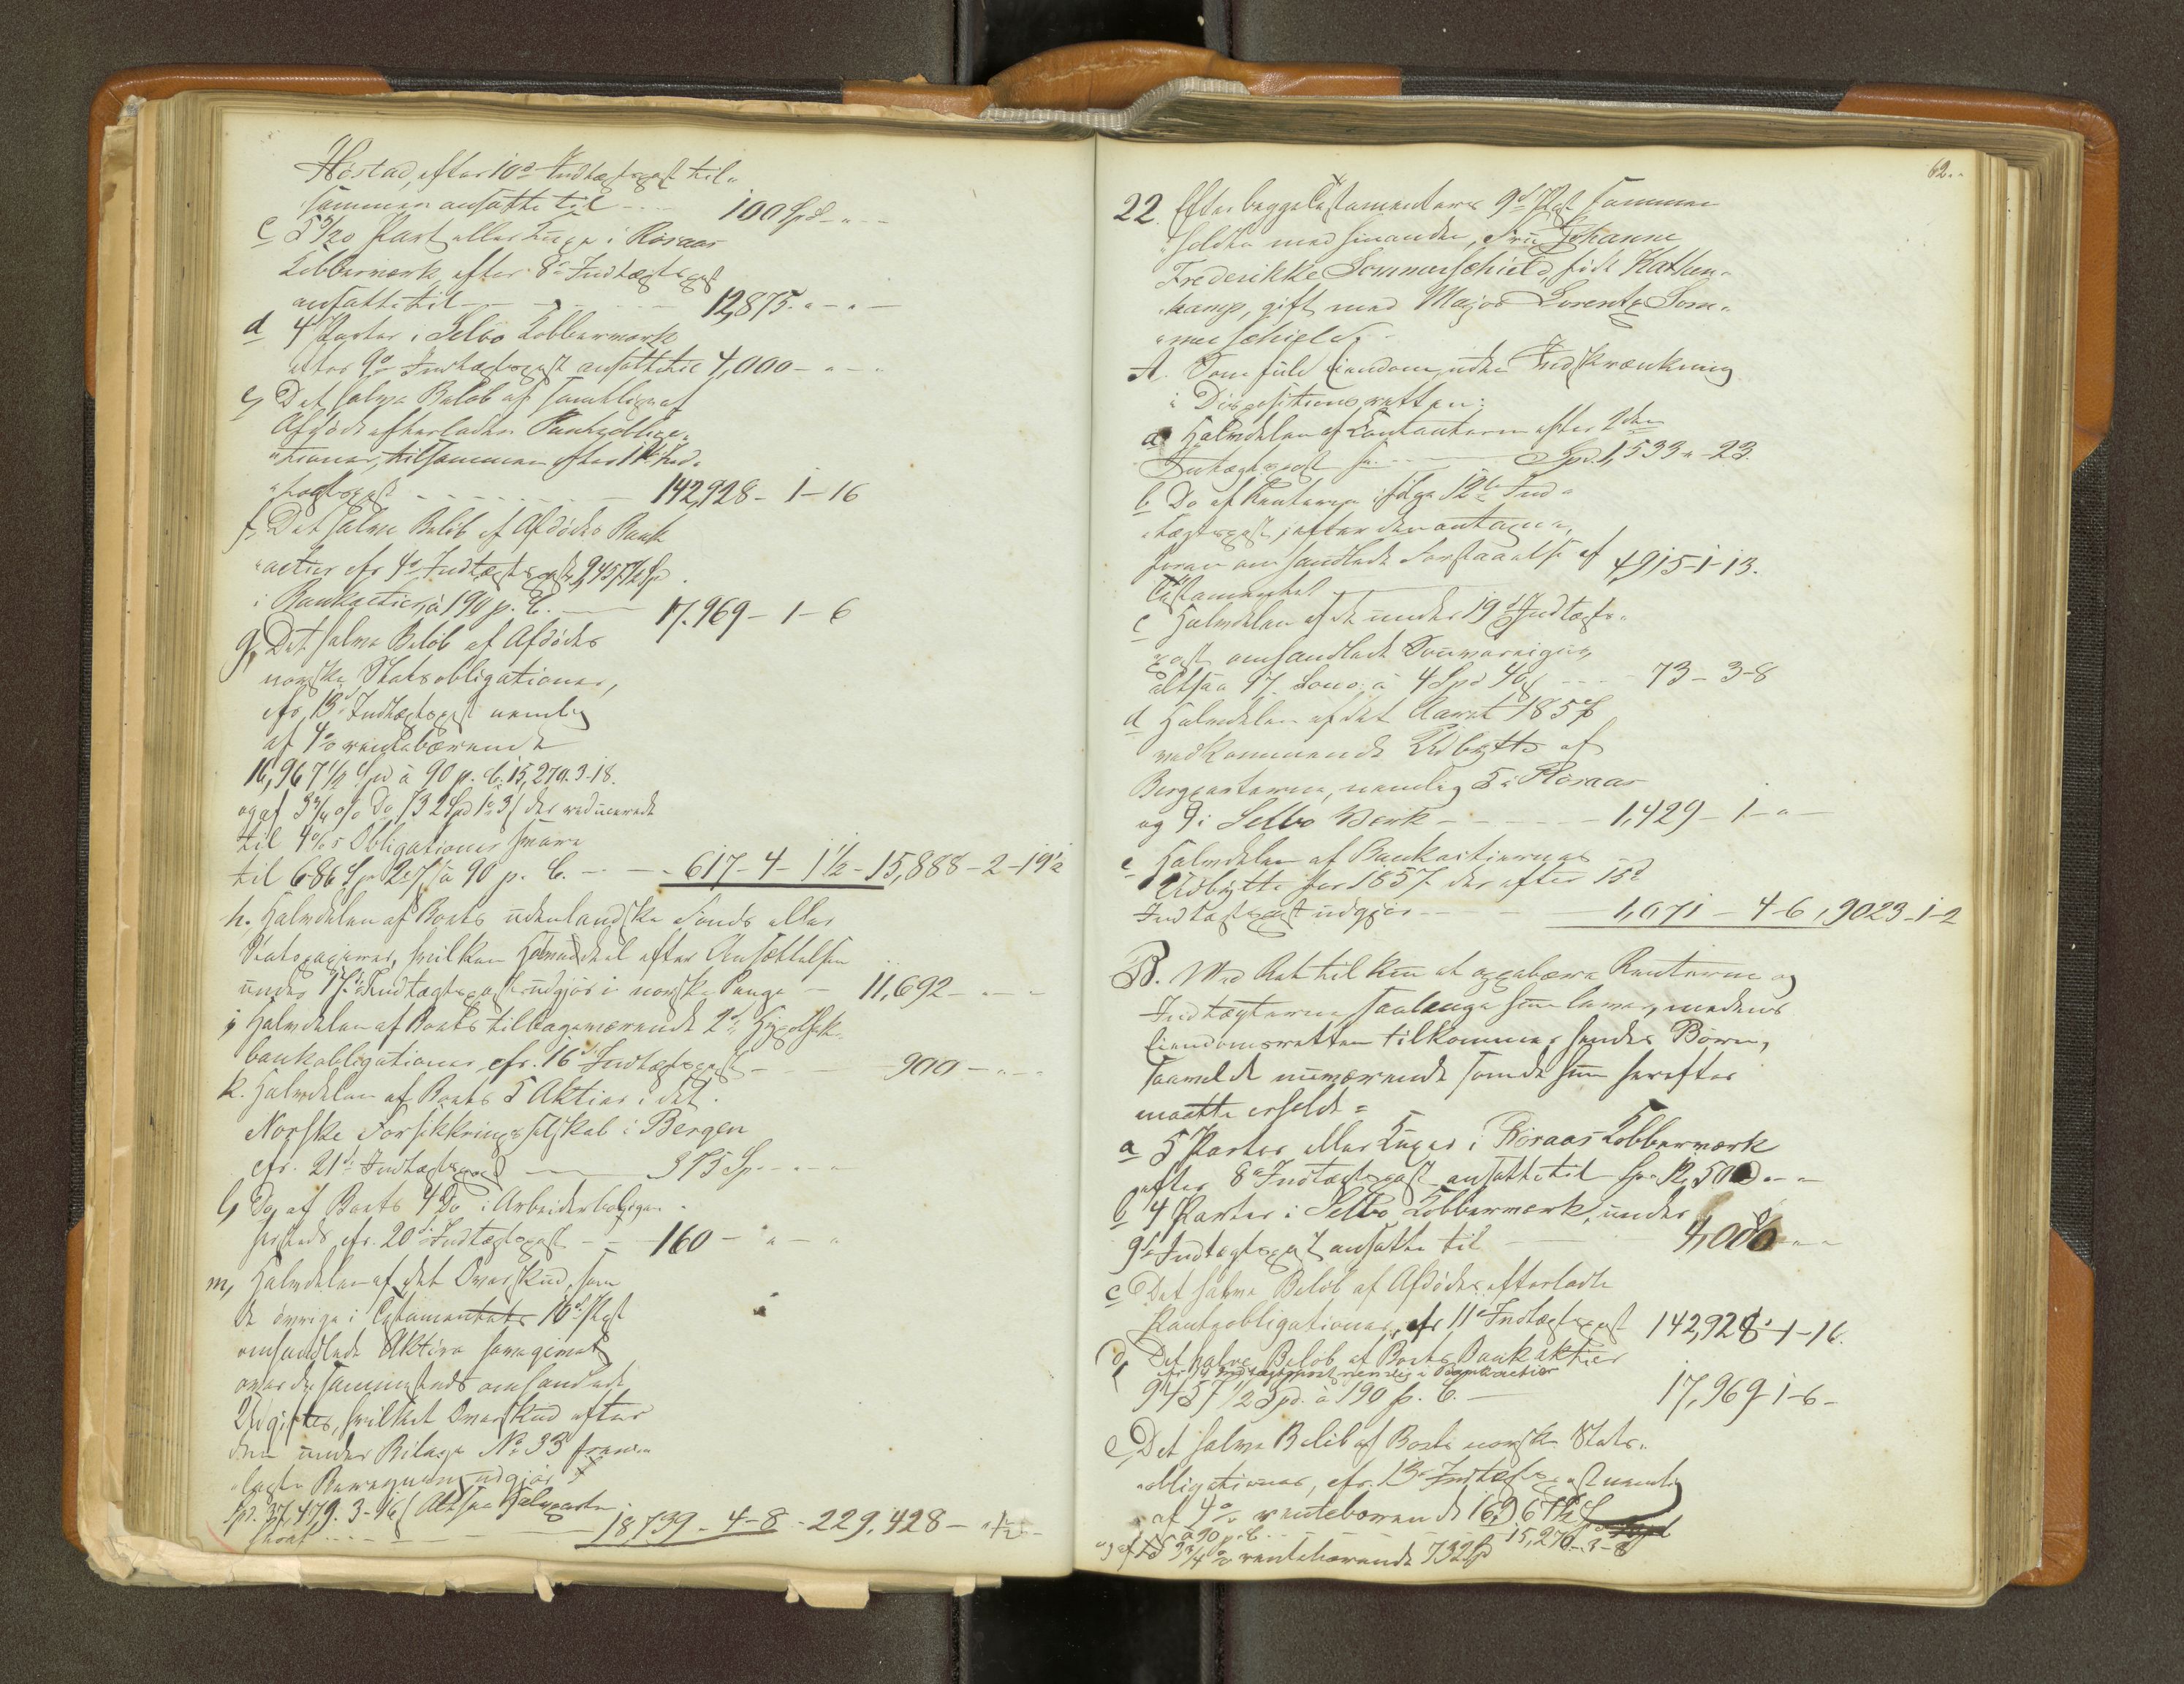 Høstad, efter 10de Indtægtspost til-
sammen ansatte til - - 100 Spd " - -
c 5 3/20 Part eller Kuxe i Röraas
Kobberværk, efter 8de Indtægtspost
ansatte til - - - - 12,875 - " - " -
d 4 Parter i Selbo Kobberværk
efter 9de Indtægtspost ansatte til 4,000 - " - "
e, Det halve Beløb af samtlige af
Afdöde efterladte Panteobliga-
"tioner, tilsammen efter 11te Ind-
"tægtspost - - - - - 142,928 - 1 - 16
f, Det halve Beløb af Afdödes Bank
"actier cfr 14de Indtægtspost 9,457 1/2 Spd
i Bankactier à 190 p. C. - 17,969 - 1 - 6
g, Det halve Beløb af Afdödes
norske Statsobligationer,
cfr. 13de Indtægtspost nemlig
af 4% rentebærende
16,967 1/2 Spd à 90 p. C. 15,270. 3. 18.
og af 3 3/4 % Do 732 Spd 1 # 3 ß der reducerede
til 4% s Obligationer svare
til 686 Sp 2 # 7 ß à 90 p. C. - - - 617 - 4 - 1 1/2 - 15,888 - 2 - 19 1/2
h. Halvdelen af Boets udenlandske Fonds eller
Statspapirer, hvilken Halvdeel efter Ansættelsen
under 17de Indtægtspost udgjør i norske Penge - 11,692 - " - "
i, Halvdelen af Boets tilbageværende 2de Hypothek-
bankobligationer, cfr. 16de Indtægtspost - - - 900 - " - "
k. Halvdelen af Boets 5 Aktier i det
Norske Forsikkringsselskab i Bergen
cfr. 21de Indtægtspost - 375 Sp. - " - "
l, Do af Boets 4 Do i Arbeiderboliger
hersteds, cfr. 20de Indtægtspost - - 160 - " - "
m, Halvdelen af det Overskud, som
de övrige i Testamentets 10de Post
omhandlede Aktiva have givet
over de sammesteds omhandlede
Udgifter, hvilket Overskud efter
den under Bilage No 33 frem-
"lagte Beregning udgjør
Spd. 37,479. 3 - 16 ß Altsaa Halvparten
heraf - - - - - 18,739 - 4 - 8 - 229,428 - " 1 1/2 -
62..
22. Efter begge Testamenters 9de Post sammen
"holdte med hinanden, Fru Johanne
Frederikke Sommerschield, født Hathen-
"kamp, gift med Major Lorentz Som-
"merschield.
A. Som fuld Eiendom, uden Indskrænkning
i Dispositionsretten:
a Halvdelen af Contanterne efter 2den
Indtægtspost - Spd. 1,533 " - 23.
b. Do af Renterne ifölge 12te Ind-
"tægtspost, efter den antagne,
foran omhandlede Forstaaelse af
Testamentet - 4915 - 1 - 13.
c Halvdelen af de under 19de Indtægts-
post omhandlede
altsaa 17 à 4 Spd 40 ß - - - 73 - 3 - 8
d Halvdelen af det Aaret 1857
vedkommende Udbytte af
Bergparterne, nemlig 5 i Röraas
og 9 i Selbo Værk - - - - 1,429 - 1 - " -
e Halvdelen af Bankactiernes
Udbytte for 1857 der efter 15de
Indtægtspost udgjør - - - 1,071 - 4 - 6, 9023 - 1 - 2
B. Med Ret til kun at oppebære Renterne og
Indtægterne saalænge hun lever, medens
Eiendomsretten tilkommer hendes Börn,
saavel de nuværende som de hun herefter
maatte erholde =
a 5 Parter eller Kuxer i Röraas Kobberværk
efter 8de Indtægtspost ansatte til Spd 12,500 - " -
b 4 Parter i Selbo Kobberværk, under
9de Indtægtspost ansatte til - 4,000 - " -
c Det halve Beløb af Afdödes efterladte
Panteobligationer, cfr 11te Indtægtspost 142,928 - 1 - 16.
d, Det halve Beløb af Boets Bankaktier
cfr 14 Indtægtspost nemlig i Bankactier
9457 1/2 Spd. à 190 p. C. - 17,969 - 1 - 6 -
e, Det halve Beløb af Boets norske Stats-
"obligationer, cfr. 13de Indtægtspost nemlig
af 4% rentebærende 16,967 1/2
à 90 p. C. - - 15,270 - 3 - 18
og af 3 3/4 % rentebærende 732 Spd